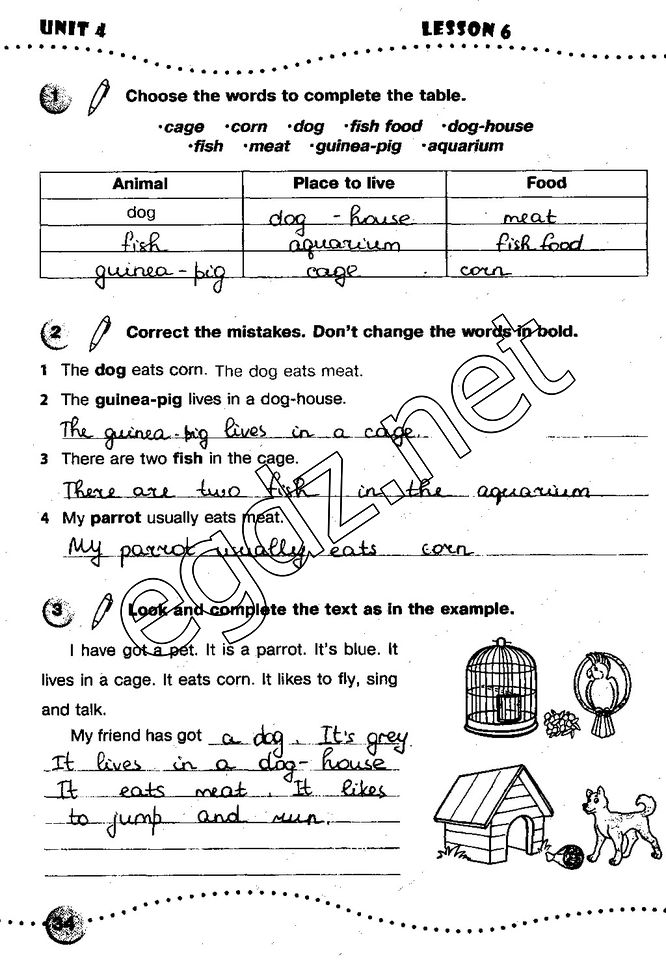 UNIT 4 LESSON 6
1 Choose the words to complete the table.
•cage •corn •dog •fish food •dog-house
•fish •meat •guinea-pig •aquarium
Animal Place to live Food
dog dog - house meat
fish aquarium fish food
guinea-pig cage corn
2 Correct the mistakes. Don't change the words in bold.
1 The dog eats corn. The dog eats meat.
2 The guinea-pig lives in a dog-house.
The guinea-pig lives in a cage.
3 There are two fish in the cage.
There are two fish in the aquarium
4 My parrot usually eats meat.
My parrot usually eats corn
3 Look and complete the text as in the example.
I have got a pet. It is a parrot. It's blue. It
lives in a cage. It eats corn. It likes to fly, sing
and talk.
My friend has got a dog. It's grey
It lives in a dog-house
It eats meat. It likes
to jump and run.
34
egdz.net